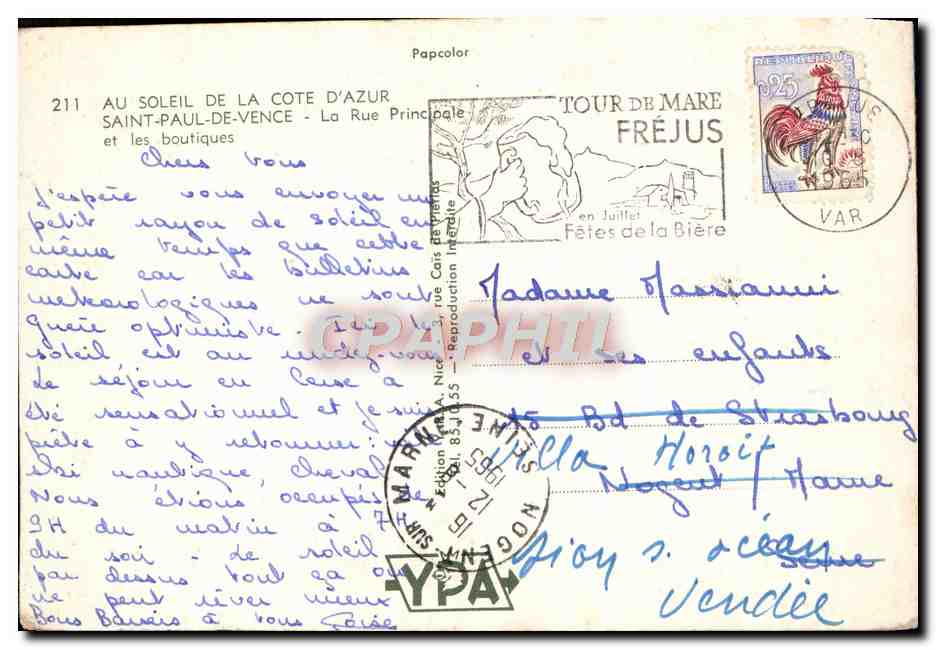 Papcolor
211 AU SOLEIL DE LA COTE D'AZUR
SAINT-PAUL-DE-VENCE - La Rue Principale
et les boutiques
Chers Vous
J'espère vous envoyer un
petit rayon de soleil en
même temps que cette
carte car les bulletins
météorologiques ne sont
guère optimiste. Ici le
soleil est au rendez-vous
Le séjour en Corse a
été sensationnel et je suis
prête à y retourner:
ski nautique, cheval
Nous étions occupés de
9H du matin à 7H
du soir - Le soleil
par dessus tout ça on
ne peut rêver mieux
Bons Baisers à vous
Edition Nice 3, rue Caïs de Pierlas
Tel. 85.10.55 - Reproduction Interdite
TOUR DE MARE
FRÉJUS
en Juillet
Fêtes de la Bière
REPUBLIQUE FRANÇAISE
0,25
POSTES
1965
VAR
Madame Massianni
et ses enfants
15 Bd de Strasbourg
Villa Horoit
Nogent / Marne
Seine
Sion s. océan
Vendée
NOGENT SUR MARNE SEINE
12-8
1965
YPA
CPAPHIL